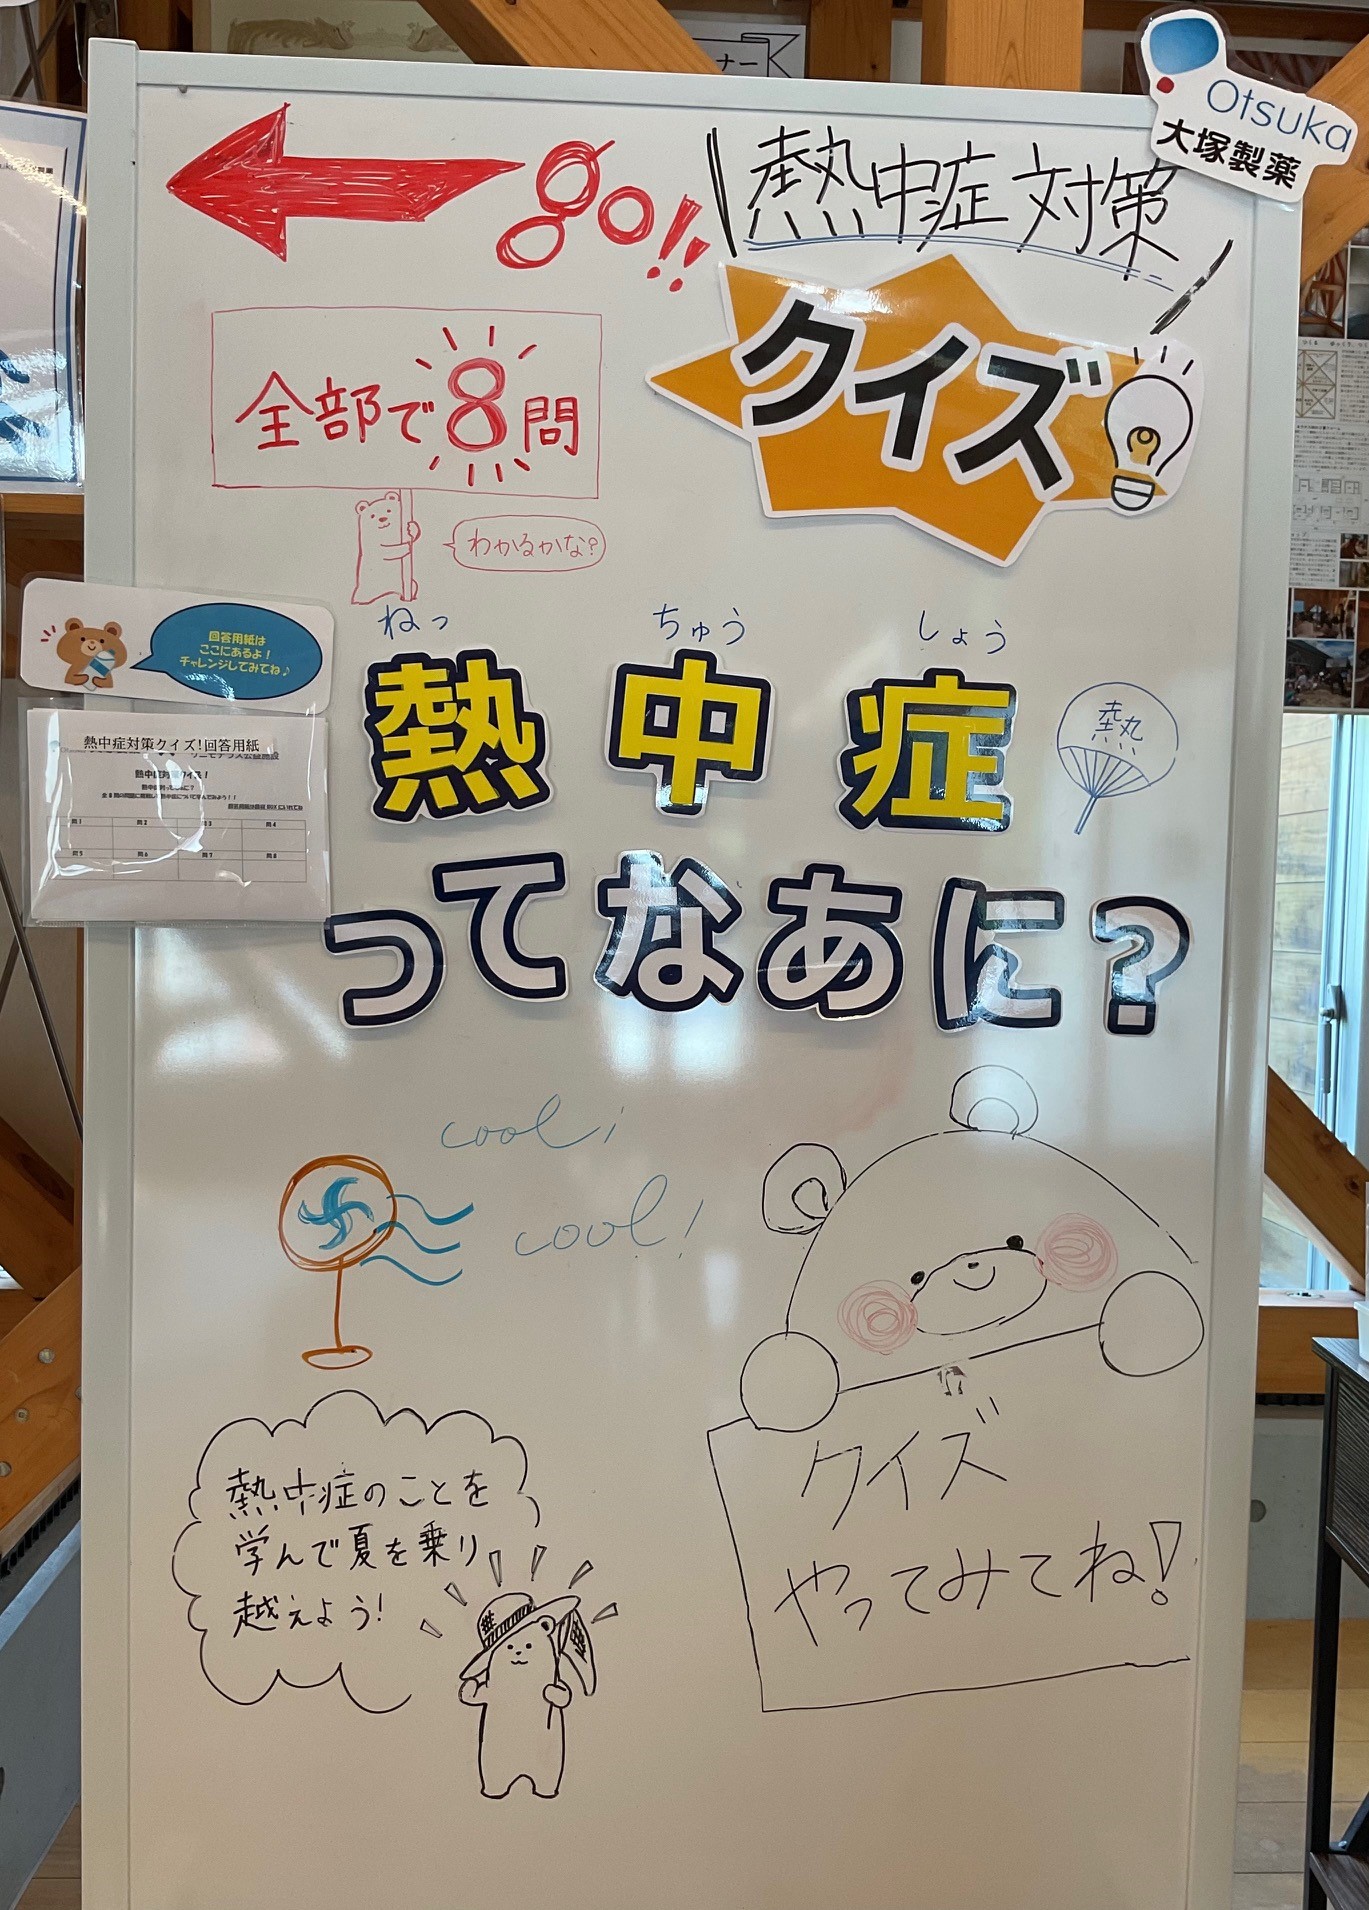 ナー
Otsuka
大塚製薬
go!!
熱中症対策
クイズ
全部で8問
わかるかな?
回答用紙は
ここにあるよ!
チャレンジしてみてね♪
熱中症対策クイズ!回答用紙
熱中症対策クイズ!
問1 問2 問3 問4
問5 問6 問7 問8
ねっ ちゅう しょう
熱中症
熱
ってなあに?
cool!
cool!
熱中症のことを
学んで夏を乗り
越えよう!
クイズ
やってみてね!